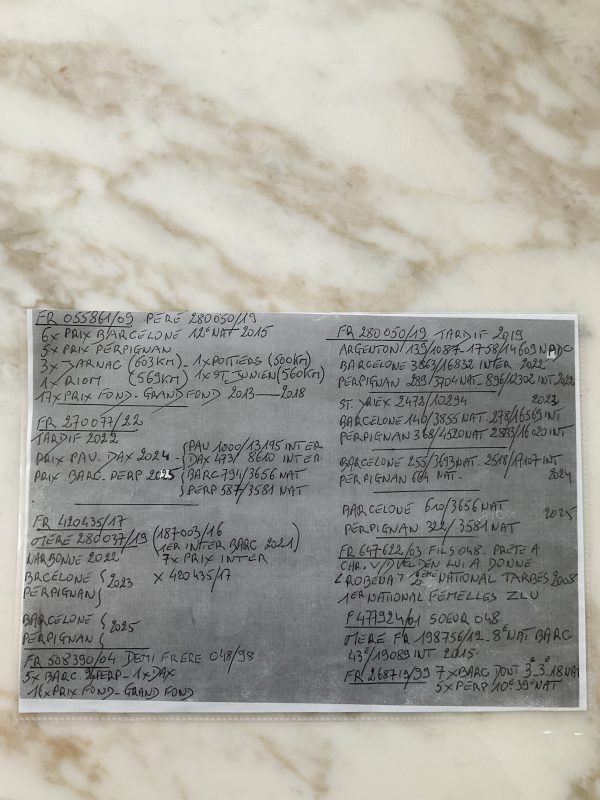 FR 055861/09 PERE 280050/19
6x PRIX BARCELONE 12e NAT 2015
5x PRIX PERPIGNAN
3x JARNAC (603KM) - 1x POITERS (500KM)
1x RIOM (569KM) 1x ST JUNIEN (560KM)
17x PRIX FOND - GRAND FOND 2013 — 2018
FR 270077/22
TARDIF 2022
PRIX PAU. DAX 2024 - { PAU 1000/13195 INTER
DAX 473/8610 INTER
PRIX BARC. PERP 2025 { BARC 794/3656 NAT
PERP 587/3581 NAT
FR 420435/17
MERE 280037/19 (187003/16
1ER INTER BARC 2021)
NARBONNE 2022 7x PRIX INTER
BRCELONE { 2023 x 420435/17
PERPIGNAN
BARCELONE { 2025
PERPIGNAN
FR 508390/04 DEMI FRERE 048/98
5x BARC. PERP - 1x DAX
16x PRIX FOND - GRAND FOND
FR 280050/19 TARDIF 2019
ARGENTON 139/1087 - 1758/14609 NAT
BARCELONE 3863/16832 INTER 2022
PERPIGNAN 289/3704 NAT 896/12302 INT 2022
ST. YREX 2472/10294 2023
BARCELONE 140/3855 NAT. 278/16569 INT
PERPIGNAN 368/4520 NAT 2823/16020 INT
BARCELONE 255/3693 NAT. 2518/17107 INT
PERPIGNAN 664 NAT. 2024
BARCELONE 610/3656 NAT
PERPIGNAN 322/3581 NAT 2025
FR 647622/03 FILS 048. PRETE A
CHR. V/D VELDEN LUI A DONNE
"ROBENA" 2EME NATIONAL TARBES 2008
1ER NATIONAL FEMELLES ZLU
F 477924/01 SOEUR 048
MERE FR 198756/12. 8e NAT BARC
43e/19089 INT 2015.
FR 268719/99 7x BARC DONT 3e-3e.18 NAT
5x PERP 10e 39e NAT